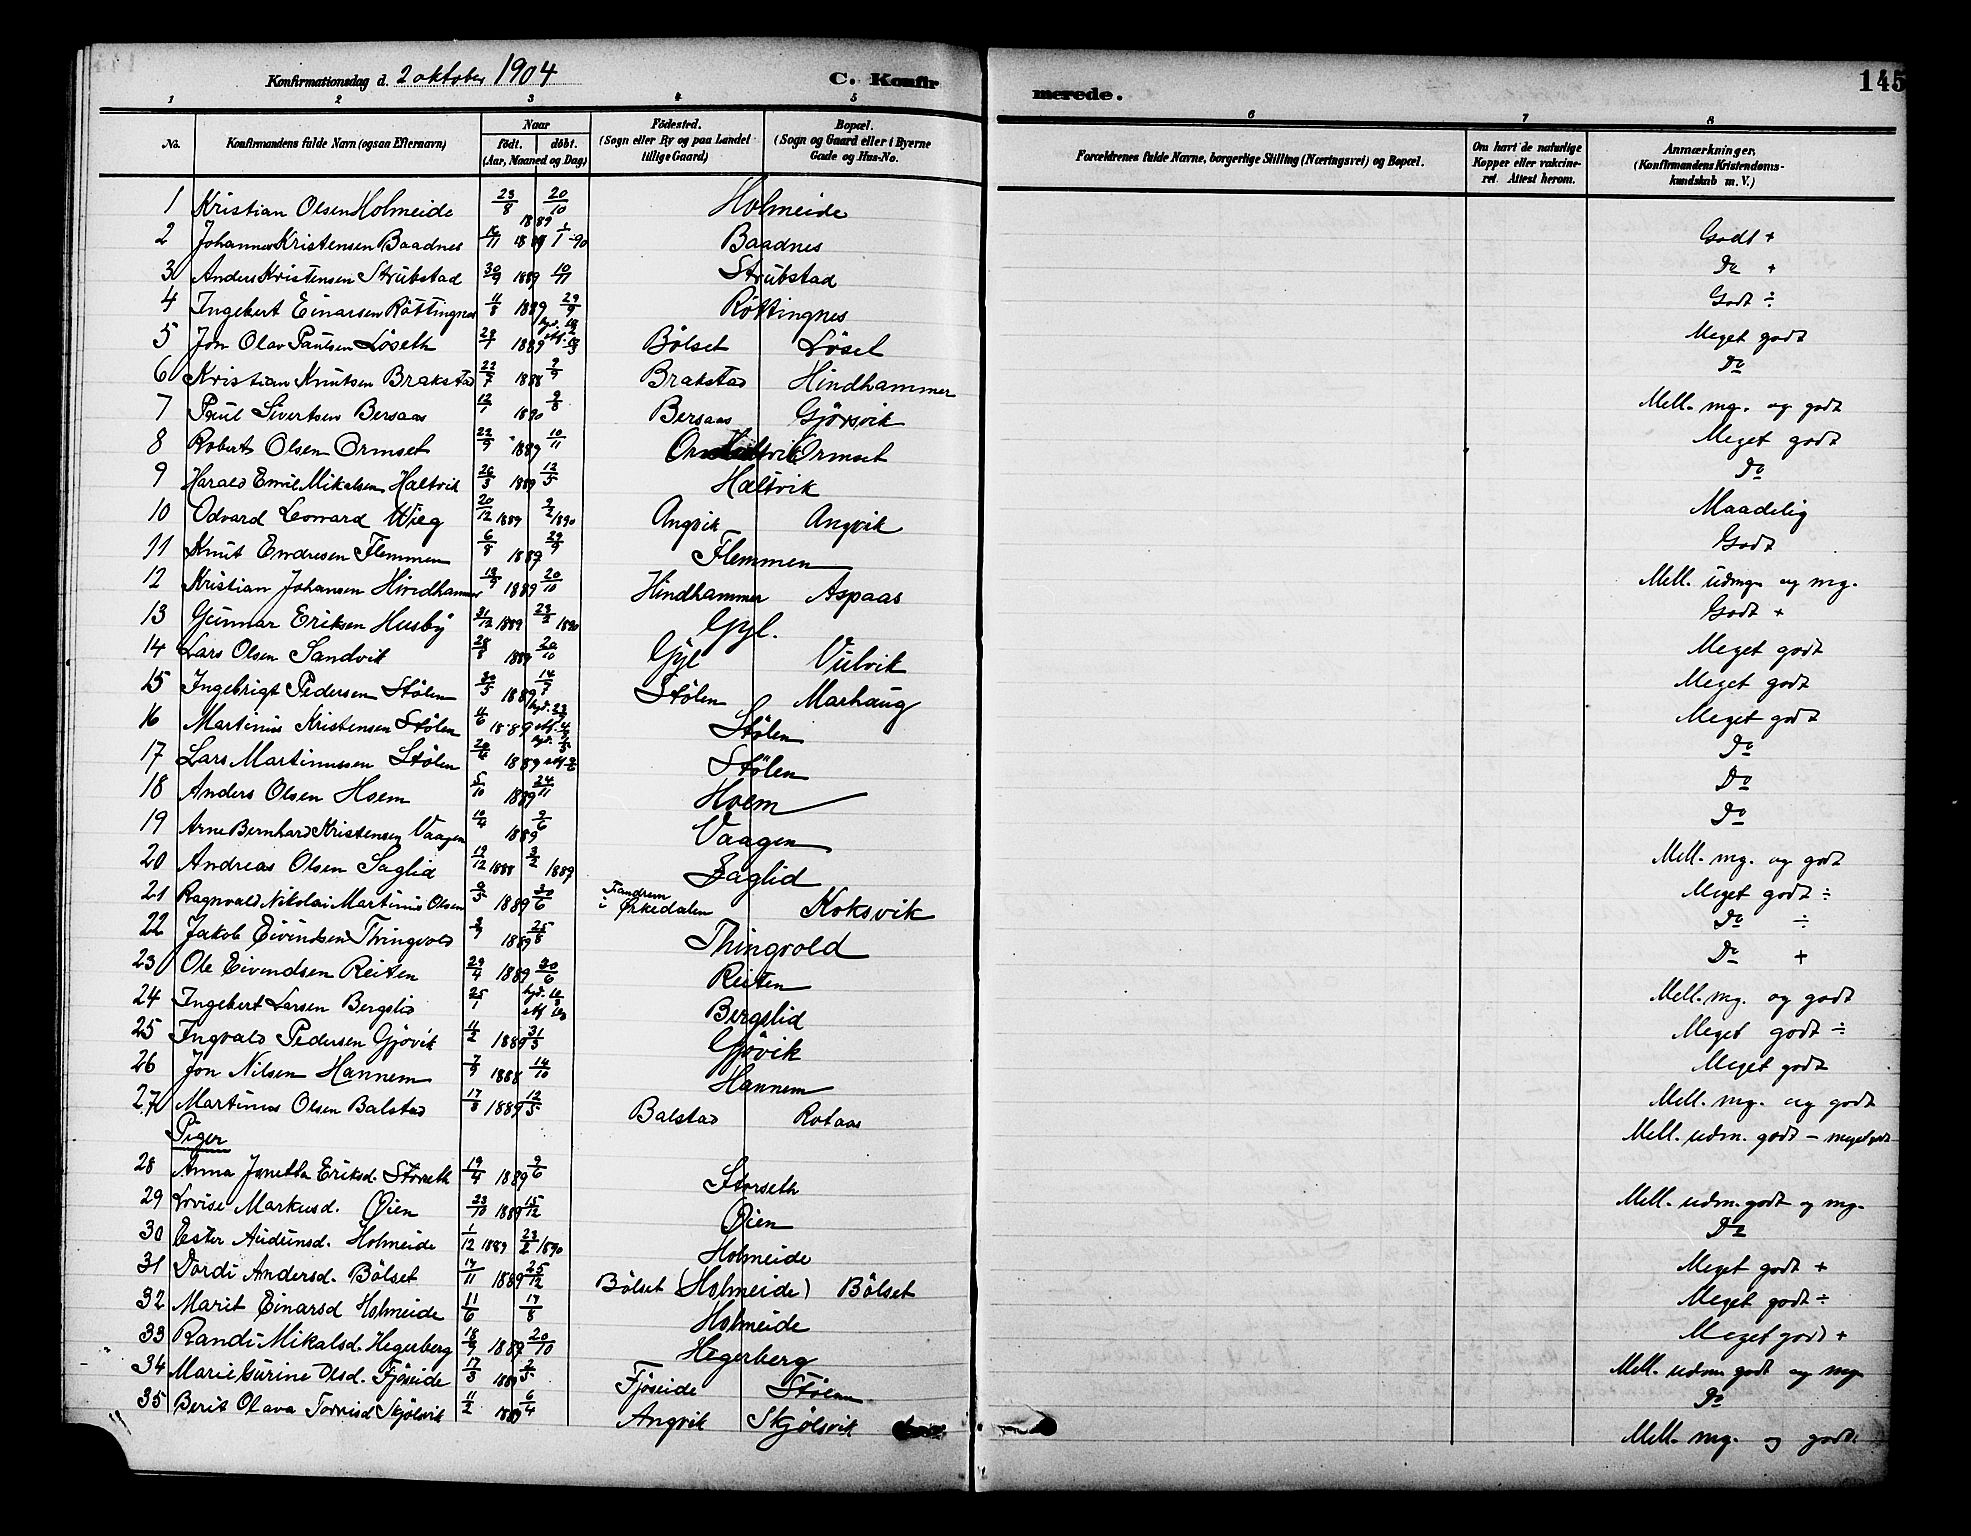 Konfirmationsdag d. 2 oktober 1904 C. Konfir merede. 145
1 2 3 4 5 6 7 8
No. Konfirmandens fulde Navn (ogsaa Efternavn) Naar født. døbt. (Aar, Maaned og Dag) Fødested. (Sogn eller By og paa Landet tillige Gaard) Bopæl. (Sogn og Gaard eller i Byerne Gade og Hus-No. Forældrenes fulde Navne, borgerlige Stilling (Næringsvei) og Bopæl. Om havt de naturlige Kopper eller vakcineret. Attest herom. Anmærkninger, (Konfirmandens Kristendomskundskab m. V.)
1 Kristian Olsen Holmeide 23/8 1889 20/10 Holmeide Godt +
2 Johannes Kristensen Baadnes 16/11 1889 1/1-90 Baadnes Do +
3 Anders Kristensen Strubstad 30/9 1889 10/11 Strubstad Godt ÷
4 Ingebert Einarsen Röttingnes 11/8 1889 29/9 Röttingnes Meget godt
5 Jon Olav Paulsen Löseth 1889 Bölset Löset Do
6 Kristian Knutsen Brakstad 22/7 1888 2/9 Brakstad Hindhammer Mell. mg. og godt
7 Paul Sivertsen Bersaas 12/1 1890 Bersaas Gjörsvik Meget godt
8 Robert Olsen Ormset 22/9 1889 10/11 Ormset Do
9 Harald Emil Mikalsen Haltvik 26/3 1889 12/5 Haltvik Maadelig
10 Odvard Leonard Wieg 20/12 1889 2/2 1890 Angvik Angvik Godt
11 Knut Endresen Flemmen 6/8 1889 29/9 Flemmen Mell. udmg. og mg.
12 Kristian Johansen Hindhammer 1889 20/10 Hindhammer Aspaas Godt +
13 Gunnar Eriksen Husby 31/12 1889 23/2 1890 Gyl. Meget godt
14 Lars Olsen Sandvik 28/8 1889 20/10 Gyl Vulvik Meget godt
15 Ingebrigt Pedersen Stölen 30/5 1889 14/7 Stölen Marhaug Meget godt
16 Martinus Kristensen Stölen 11/6 1889 Stölen Do
17 Lars Martinussen Stölen 1889 Stölen Do
18 Anders Olsen Hoem 5/10 1889 24/11 Hoem Do
19 Arne Bernhard Kristensen Vaagen 1889 9/6 Vaagen Mell. mg. og godt
20 Andreas Olsen Saglid 19/12 1888 3/2 1889 Saglid Meget godt ÷
21 Ragnvald Nikolai Martinus Olsen 1889 30/6 i Orkedalen Koksvik Do ÷
22 Jakob Eivindsen Thingvold 1889 25/8 Thingvold Do +
23 Ole Eivendsen Reiten 29/4 1889 30/6 Reiten Mell. mg. og godt
24 Ingebert Larsen Bergslid 25/1 Bergslid Meget godt ÷
25 Ingvald Pedersen Gjövik 11/2 1889 31/3 Gjövik Meget godt
26 Jon Nilsen Hannem 7/9 1888 14/10 Hannem Mell. mg. og godt
27 Martinus Olsen Balstad 17/3 1889 12/5 Balstad Rotaas Mell. udm. godt - meget godt
Piger
28 Anna Janetta Eriksd. Storseth 19/4 1889 9/6 Storseth Mell. udm. godt og mg.
29 Lovise Markusd. Øien 23/10 1889 15/12 Øien Do
30 Ester Audunsd. Holmeide 1/12 1889 23/2 1890 Holmeide Meget godt +
31 Dordi Andersd. Bölset 14/11 1889 25/12 Bölset (Holmeide) Bölset Meget godt ÷
32 Marit Einarsd Holmeide 11/6 Holmeide Meget godt +
33 Randi Mikalsd. Hegerberg 18/9 1889 20/10 Hegerberg Mell. udm. godt og mg.
34 Marie Gurine Olsd. Fjöseide 17/3 1889 Fjöseide Stölen Do
35 Berit Olava Skjölsvik 11/2 1889 Angvik Skjölsvik Mell. mg. og godt